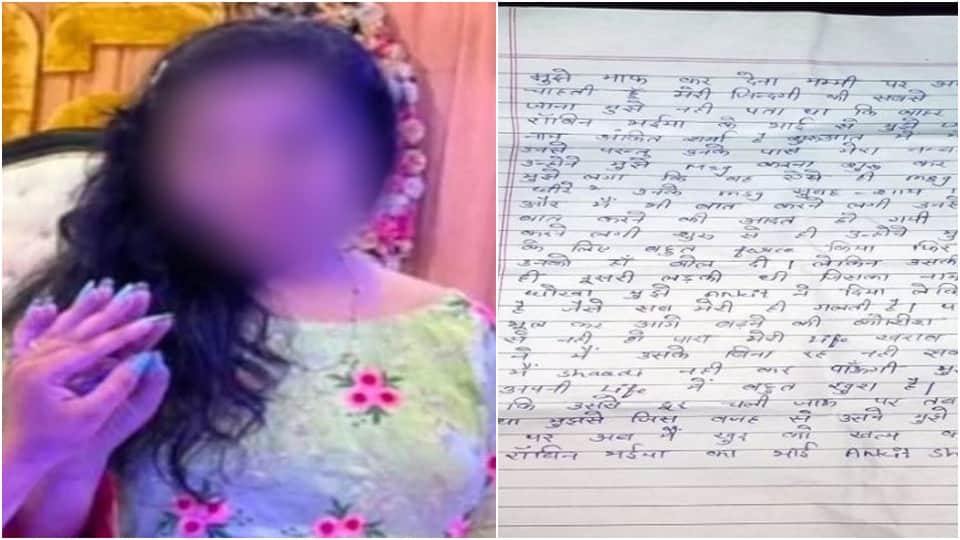 मुझे माफ कर देना मम्मी पर अ
चाहती हूँ मेरी जिन्दगी की सबसे
जाना मुझे नही पता था कि बाहर
रॉबिन भईया के भाई से मुझे
नाम अंकित शर्मा है शुरुआत में
उनसे परन्तु उनके पास मेरा नम्ब
उन्होने मुझे msg करना शुरु कर
मुझे लगा कि वह ऐसे ही msg
धीरे २ उनके msg सुबह-शाम
और मैं भी बात करने लगी उनसे
बात करने की आदत हो गयी
करने लगी शुरु से ही उन्होने मु
के लिए बहुत force किया फिर
उनको हाँ बोल दी। लेकिन उसक
ही दूसरी लड़की थी जिसका नाम
धोखा मुझे Ankit ने दिया लेकि
है जैसे सब मेरी ही गलती है। प
भूल कर आगे बढ़ने की कोशिश
से नही हो पारा मेरी Life खराब
ने मैं उसके बिना रह नही सक
मैं shaadi नही कर पाऊँगी
अपनी Life में बहुत खुश है।
कि उससे दूर चली जाऊ पर तब
था मुझसे जिस वजह से उसने मुझे
पर अब मैं खुद को खत्म क
रॉबिन भईया का भाई Ankit Sh